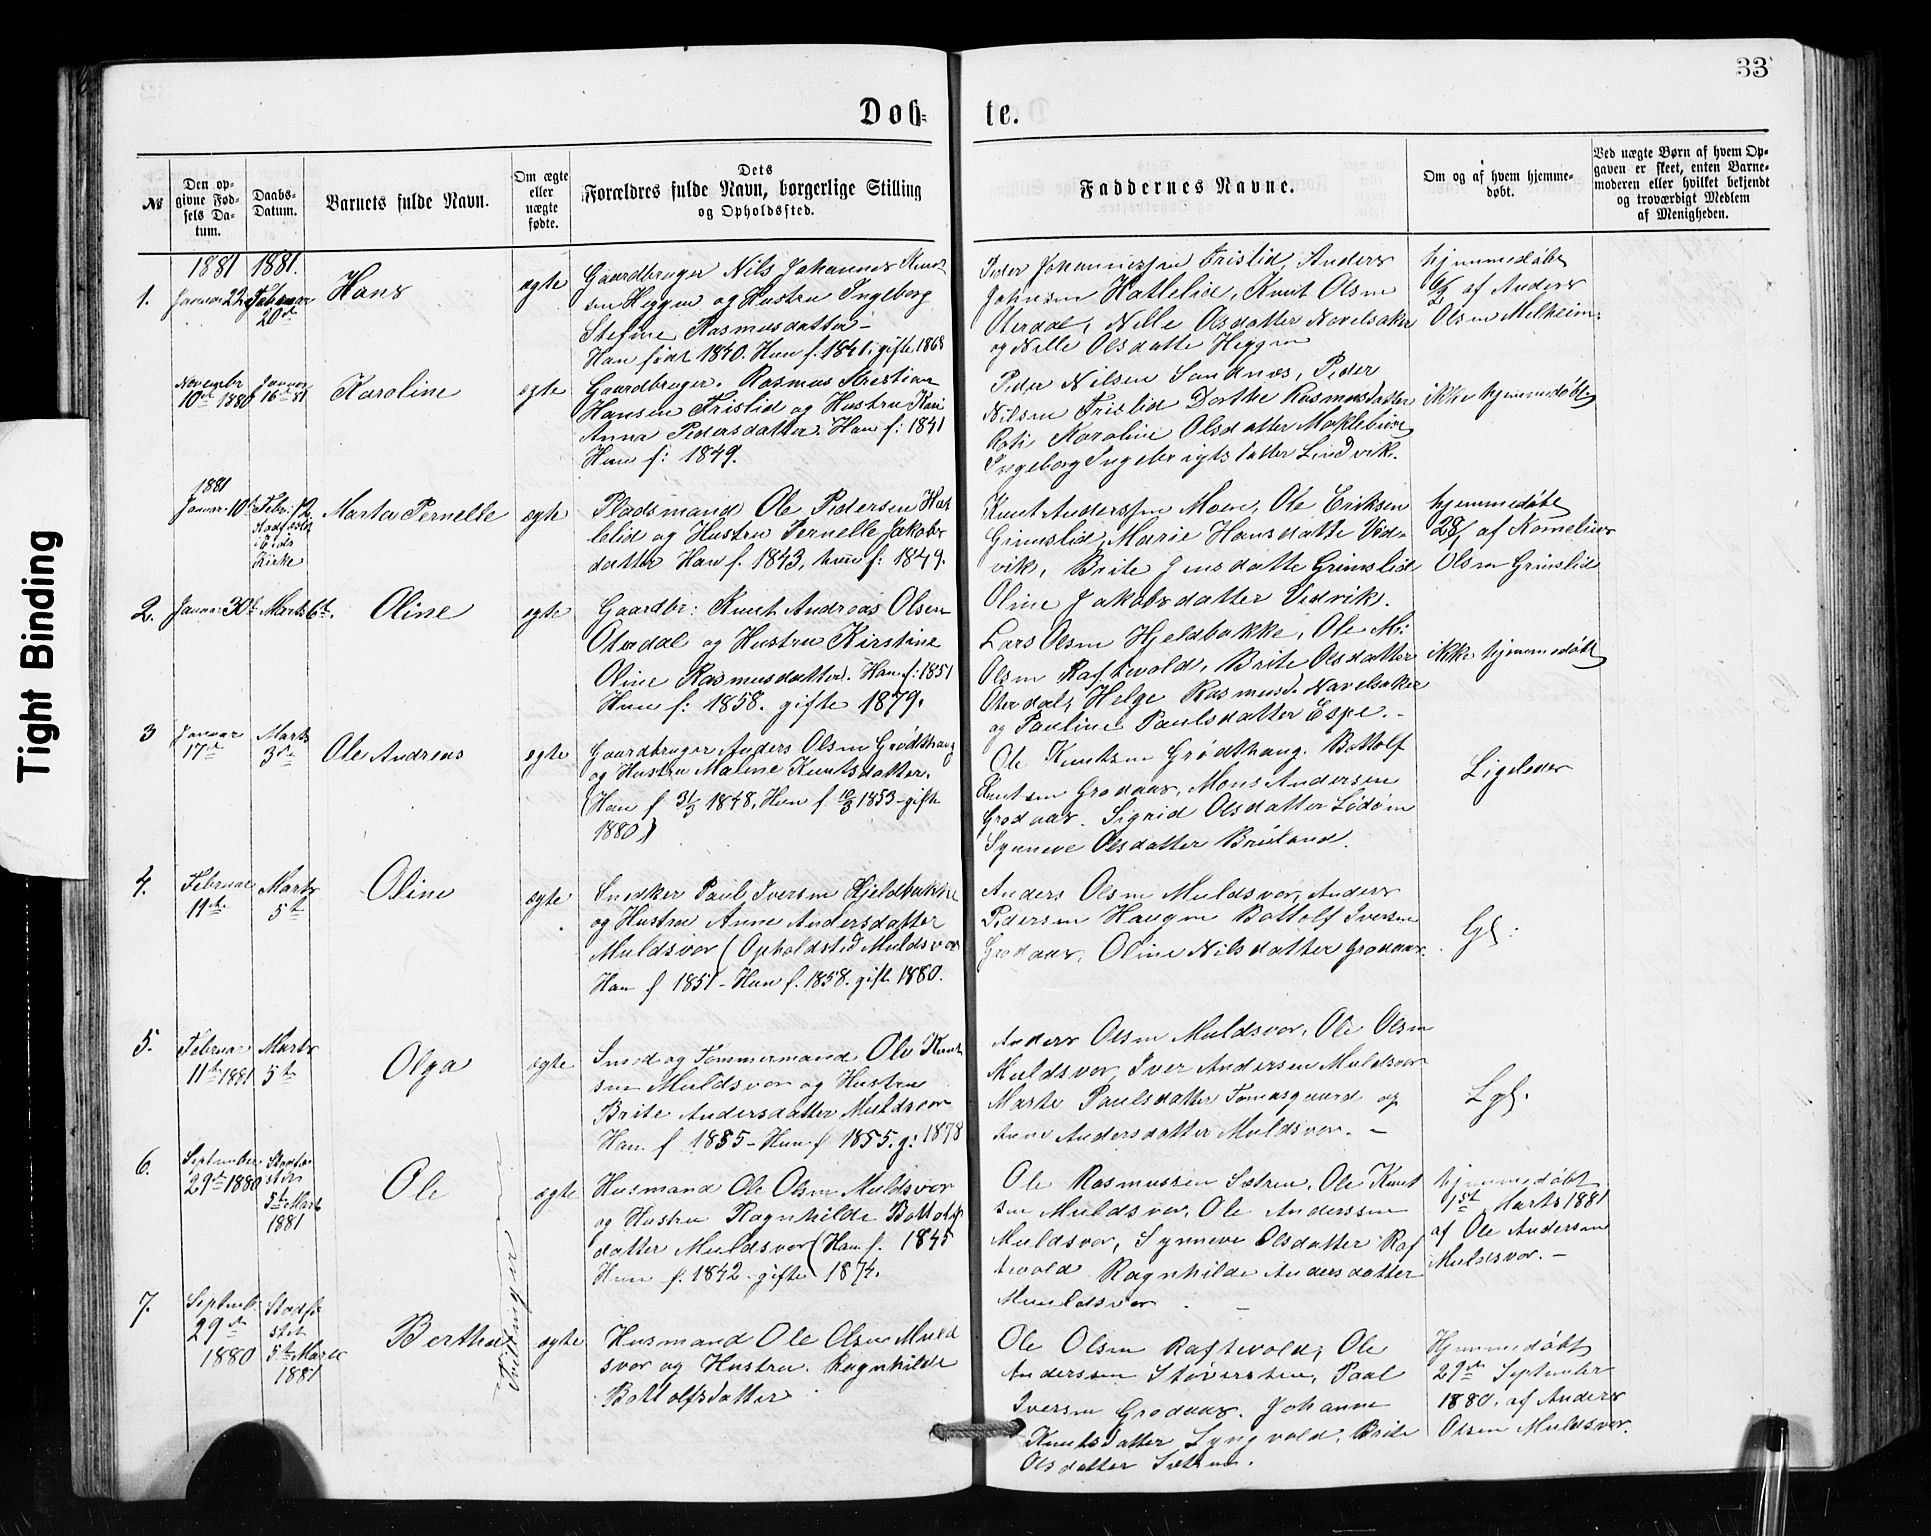 33
Døb-
te.
№
Den op-
givne Fød-
sels Da-
tum.
Daabs-
Datum.
Barnets fulde Navn.
Om ægte
eller
uægte
fødte.
Dets
Forældres fulde Navn, borgerlige Stilling
og Opholdssted.
Faddernes Navne.
Om og af hvem hjemme-
døbt.
Ved uægte Børn af hvem Op-
gaven er skeet, enten Barne-
moderen eller hvilket bekjendt
og troværdigt Medlem
af Menigheden.
1.
1881
Januar 22
1881.
Februar
20de
Hans
ægte
Gaardbruger Nils Johannes Knut
sen Heggen og Hustru Ingeborg
Stefine Rasmusdatter
Han født 1840. Hun f. 1841. gifte 1868
Peder Johannessen Fristid, Anders
Johnsen Hattelid, Knut Olsen
Oterdal, Nille Olsdatter Navelsaker
og Nille Olsdatte Heggen
hjemmedøbt
6/2 af Anders
Olsen Melheim.
November
10de 1880
Januar
16de 81
Karoline
ægte
Gaardbruger. Rasmus Kristian
Hansen Fristid og Hustru Kari
Anna Pedersdatter. Han f: 1841
Hun f: 1849.
Peder Nilsen Sandnæs, Peder
Nilsen Fristid Dorthe Rasmusdatter
Karoline Olsdatter Maklebust
Ingeborg Ingebrigtsdatter Lindvik.
ikke hjemmedøbt
1881
Januar 10de
Febr: 12
Stadfæstet
i Eids
Kirke
Marta Pernelle
ægte
Pladsmand Ole Pedersen Hat
lelid og Hustru Pernelle Jakobs
datter Han f. 1843, hun f: 1849.
Knut Anderssen Moen, Ole Eriksen
Grimslid, Marie Hansdatte Ved-
vik, Brite Jensdatte Grimslid
Oline Jakobsdatter Vedvik.
hjemmedøbt
28/1 af Kornelius
Olsen Grimslid
2.
Januar 30te
Marts 6te.
Oline
ægte
Gaardbr: Knut Andreas Olsen
Oterdal og Hustru Kirstine
Oline Rasmusdatter. Han f: 1851
Hun f: 1858. gifte 1879.
Lars Olsen Hjeldbakke, Ole M:
Olsen Raftevold, Brite Olsdatter
Oterdal, Helge Rasmusd. Navelsaker
og Pauline Paulsdatter Espe.
ikke hjemmedøbt
3
Januar
17de
Marts
3de
Ole Andreas
ægte
Gaardbruger Anders Olsen Grødthaug
og Hustru Malene Knutsdatter.
(Han f 31/3 1848, Hun f. 10/3 1853 - gifte
1880)
Ole Knutsen Grødthaug. Bottolf
Knutsen Grodaas, Mons Andersen
Grodaas. Sigrid Olsdatter Lødøen
Synneve Olsdatter Brieland.
Ligeledes
4.
Februar
11te
Marts
5te
Oline
ægte
Snedker Paul Iversen Hjeldbakke
og Hustru Anne Andersdatter
Muldsvor (Opholdsted Muldsvor
Han f 1851 - Hun f. 1858. gift. 1880.
Anders Olsen Muldsvor, Anders
Pedersen Haugen Bottolf Iversen
Grodaas, Oline Nilsdatter Grodaas.
Lgl:
5.
Februar
11te 1881
Marts
5te
Olga
ægte
Smed og Tømmermand Ole Knut
sen Muldsvor og Hustru
Brite Andersdatter Muldsvor
Han f 1855 - Hun f 1855. g: 1878
Anders Olsen Muldsvor, Ole Olsen
Muldsvor, Iver Andersen Muldsvor
Marte Paulsdatter Tomasgaard og
Anne Andersdatter Muldsvor.
Lgl.
6.
September
29de 1880
Stadfæ
stet
5te Marts
1881
Ole
ægte
Husmand Ole Olsen Muldsvor
og Hustru Ragnhilde Bottolfs
datter Muldsvor (Han f. 1845
Hun f. 1842. gifte 1874.
Ole Rasmussen Sætren, Ole Knut
sen Muldsvor, Ole Anderssen
Muldsvor, Synneve Olsdatter Raf
tevold Ragnhilde Andersdatter
Muuldsvor
hjemmedøbt
1st Marts 1881
af Ole Andersen
Muldsvor.
Tvillinger
7.
Septemb.
29de
1880
Stadfæ
stet
5te Marts
1881
Berthe
ægte
Husmand Ole Olsen Muld
svor og Hustru. Ragnhilde
Bottolfsdatter
Ole Olsen Raftevold, Ole
Anderssen Støversten, Paul
Iversen Grodaas. Johanne
Knutsdatter Lyngvold, Brite
Olsdatter Sætren.
Hjemmedøbt
29de September
1880. af Anders
Olsen Muldsvor.
Tight Binding